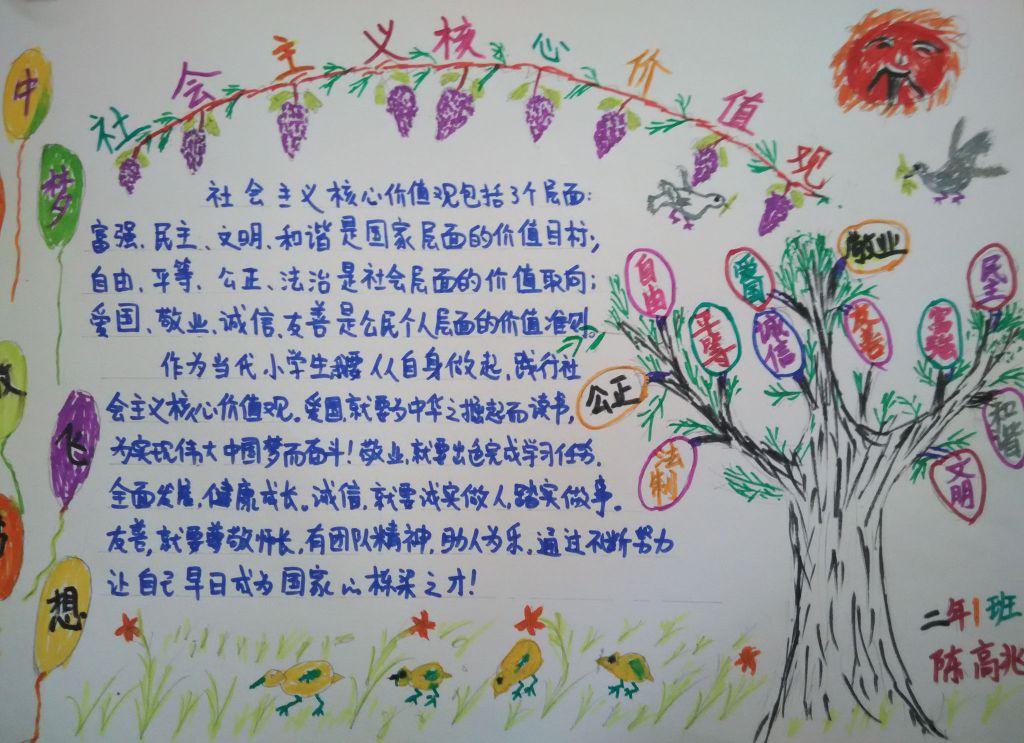 社会主义核心价值观
中
梦
飞
想
社会主义核心价值观包括3个层面:
富强、民主、文明、和谐是国家层面的价值目标;
自由、平等、公正、法治是社会层面的价值取向;
爱国、敬业、诚信、友善是公民个人层面的价值准则。
作为当代小学生要从自身做起,践行社
会主义核心价值观。爱国,就要为中华之掘起而读书,
为实现伟大中国梦而奋斗!敬业,就要出色完成学习任务,
全面发展,健康成长。诚信,就要诚实做人,踏实做事。
友善,就要尊敬师长,有团队精神,助人为乐,通过不断努力
让自己早日成为国家的栋梁之才!
敬业
自由
爱国
民主
平等
诚信
友善
富强
公正
和谐
法制
文明
二年1班
陈高兆